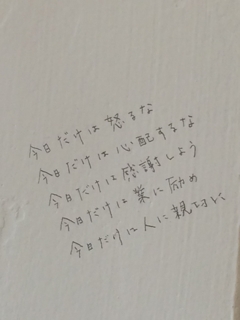 今日だけは 怒るな
今日だけは 心配するな
今日だけは 感謝しよう
今日だけは 業に励め
今日だけは 人に親切に